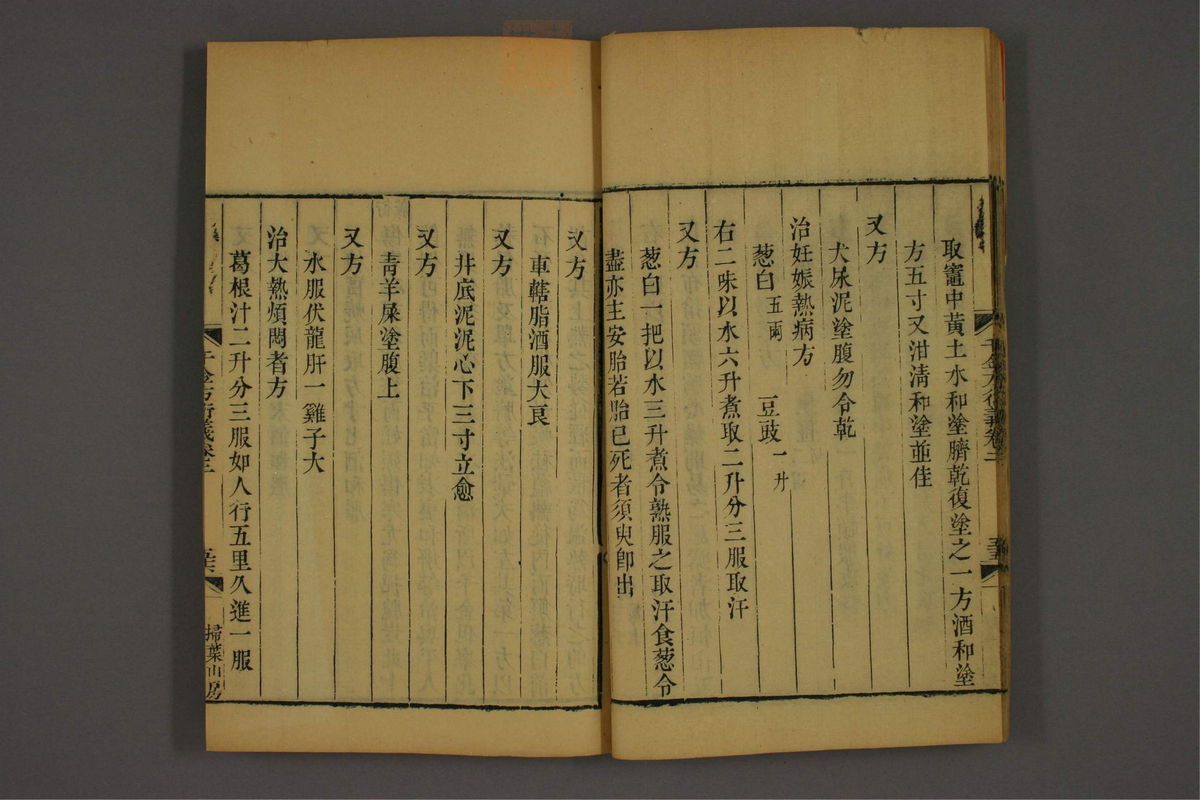 千金方衍義卷二
取竈中黃土水和塗臍乾復塗之一方酒和塗
方五寸又泔清和塗並佳
又方
犬尿泥塗腹勿令乾
治妊娠熱病方
葱白五兩 豆豉一升
右二味以水六升煮取二升分三服取汗
又方
葱白一把以水三升煮令熟服之取汗食葱令
盡亦主安胎若胎已死者須臾卽出
又方
車轄脂酒服大良
又方
井底泥泥心下三寸立愈
又方
青羊屎塗腹上
又方
水服伏龍肝一雞子大
治大熱煩悶者方
葛根汁二升分三服如人行五里久進一服
千金方衍義卷二
掃葉山房